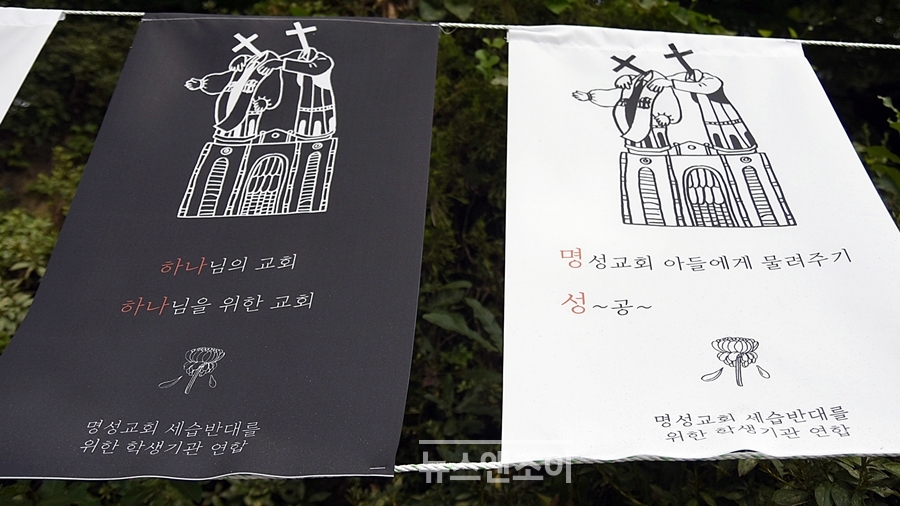 하나님의 교회
하나님을 위한 교회
명성교회 세습반대를
위한 학생기관 연합
명성교회 아들에게 물려주기
성~공~
명성교회 세습반대를
위한 학생기관 연합
뉴스앤조이